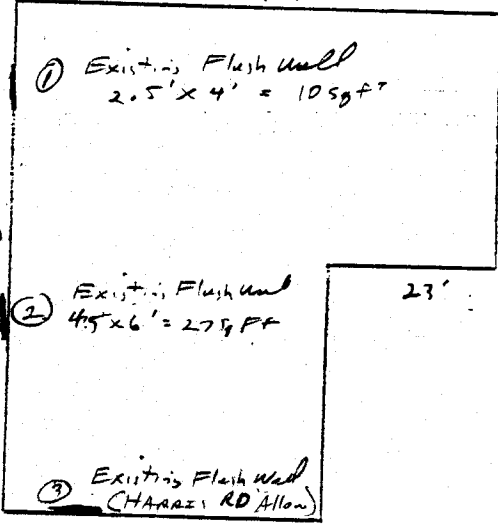 ① Existing Flush Wall
2.5' x 4' = 10 sq ft
② Existing Flush Wall
4.5 x 6' = 27 sq Ft
23'
③ Existing Flush Wall
(HARRIS RD Allow)